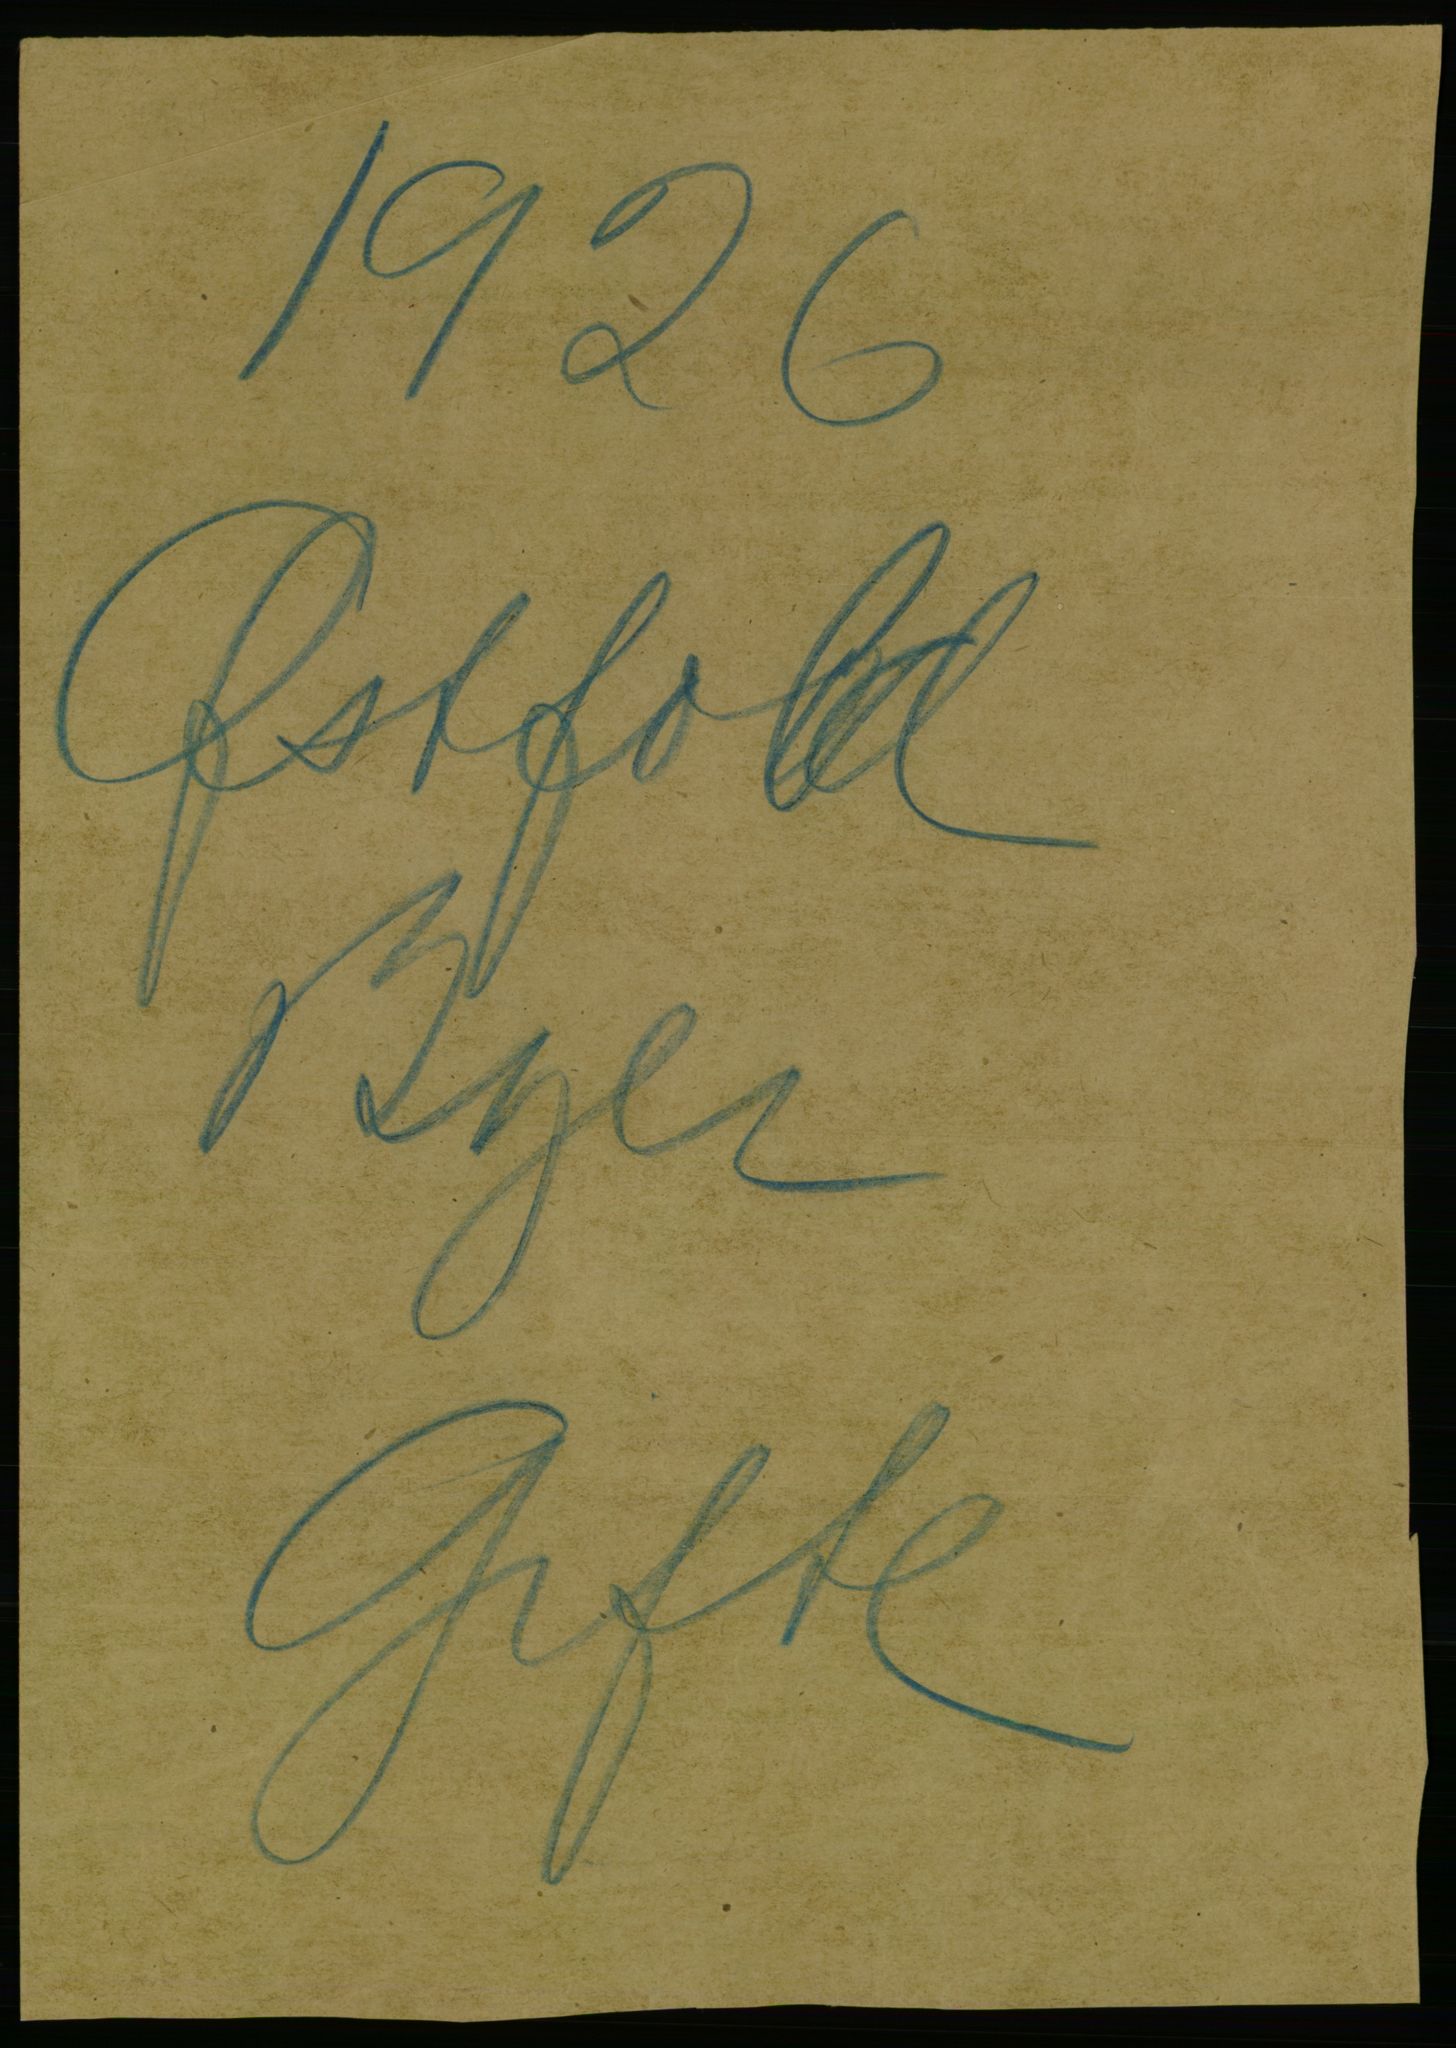 1926
Østfold
Byer
Gifte